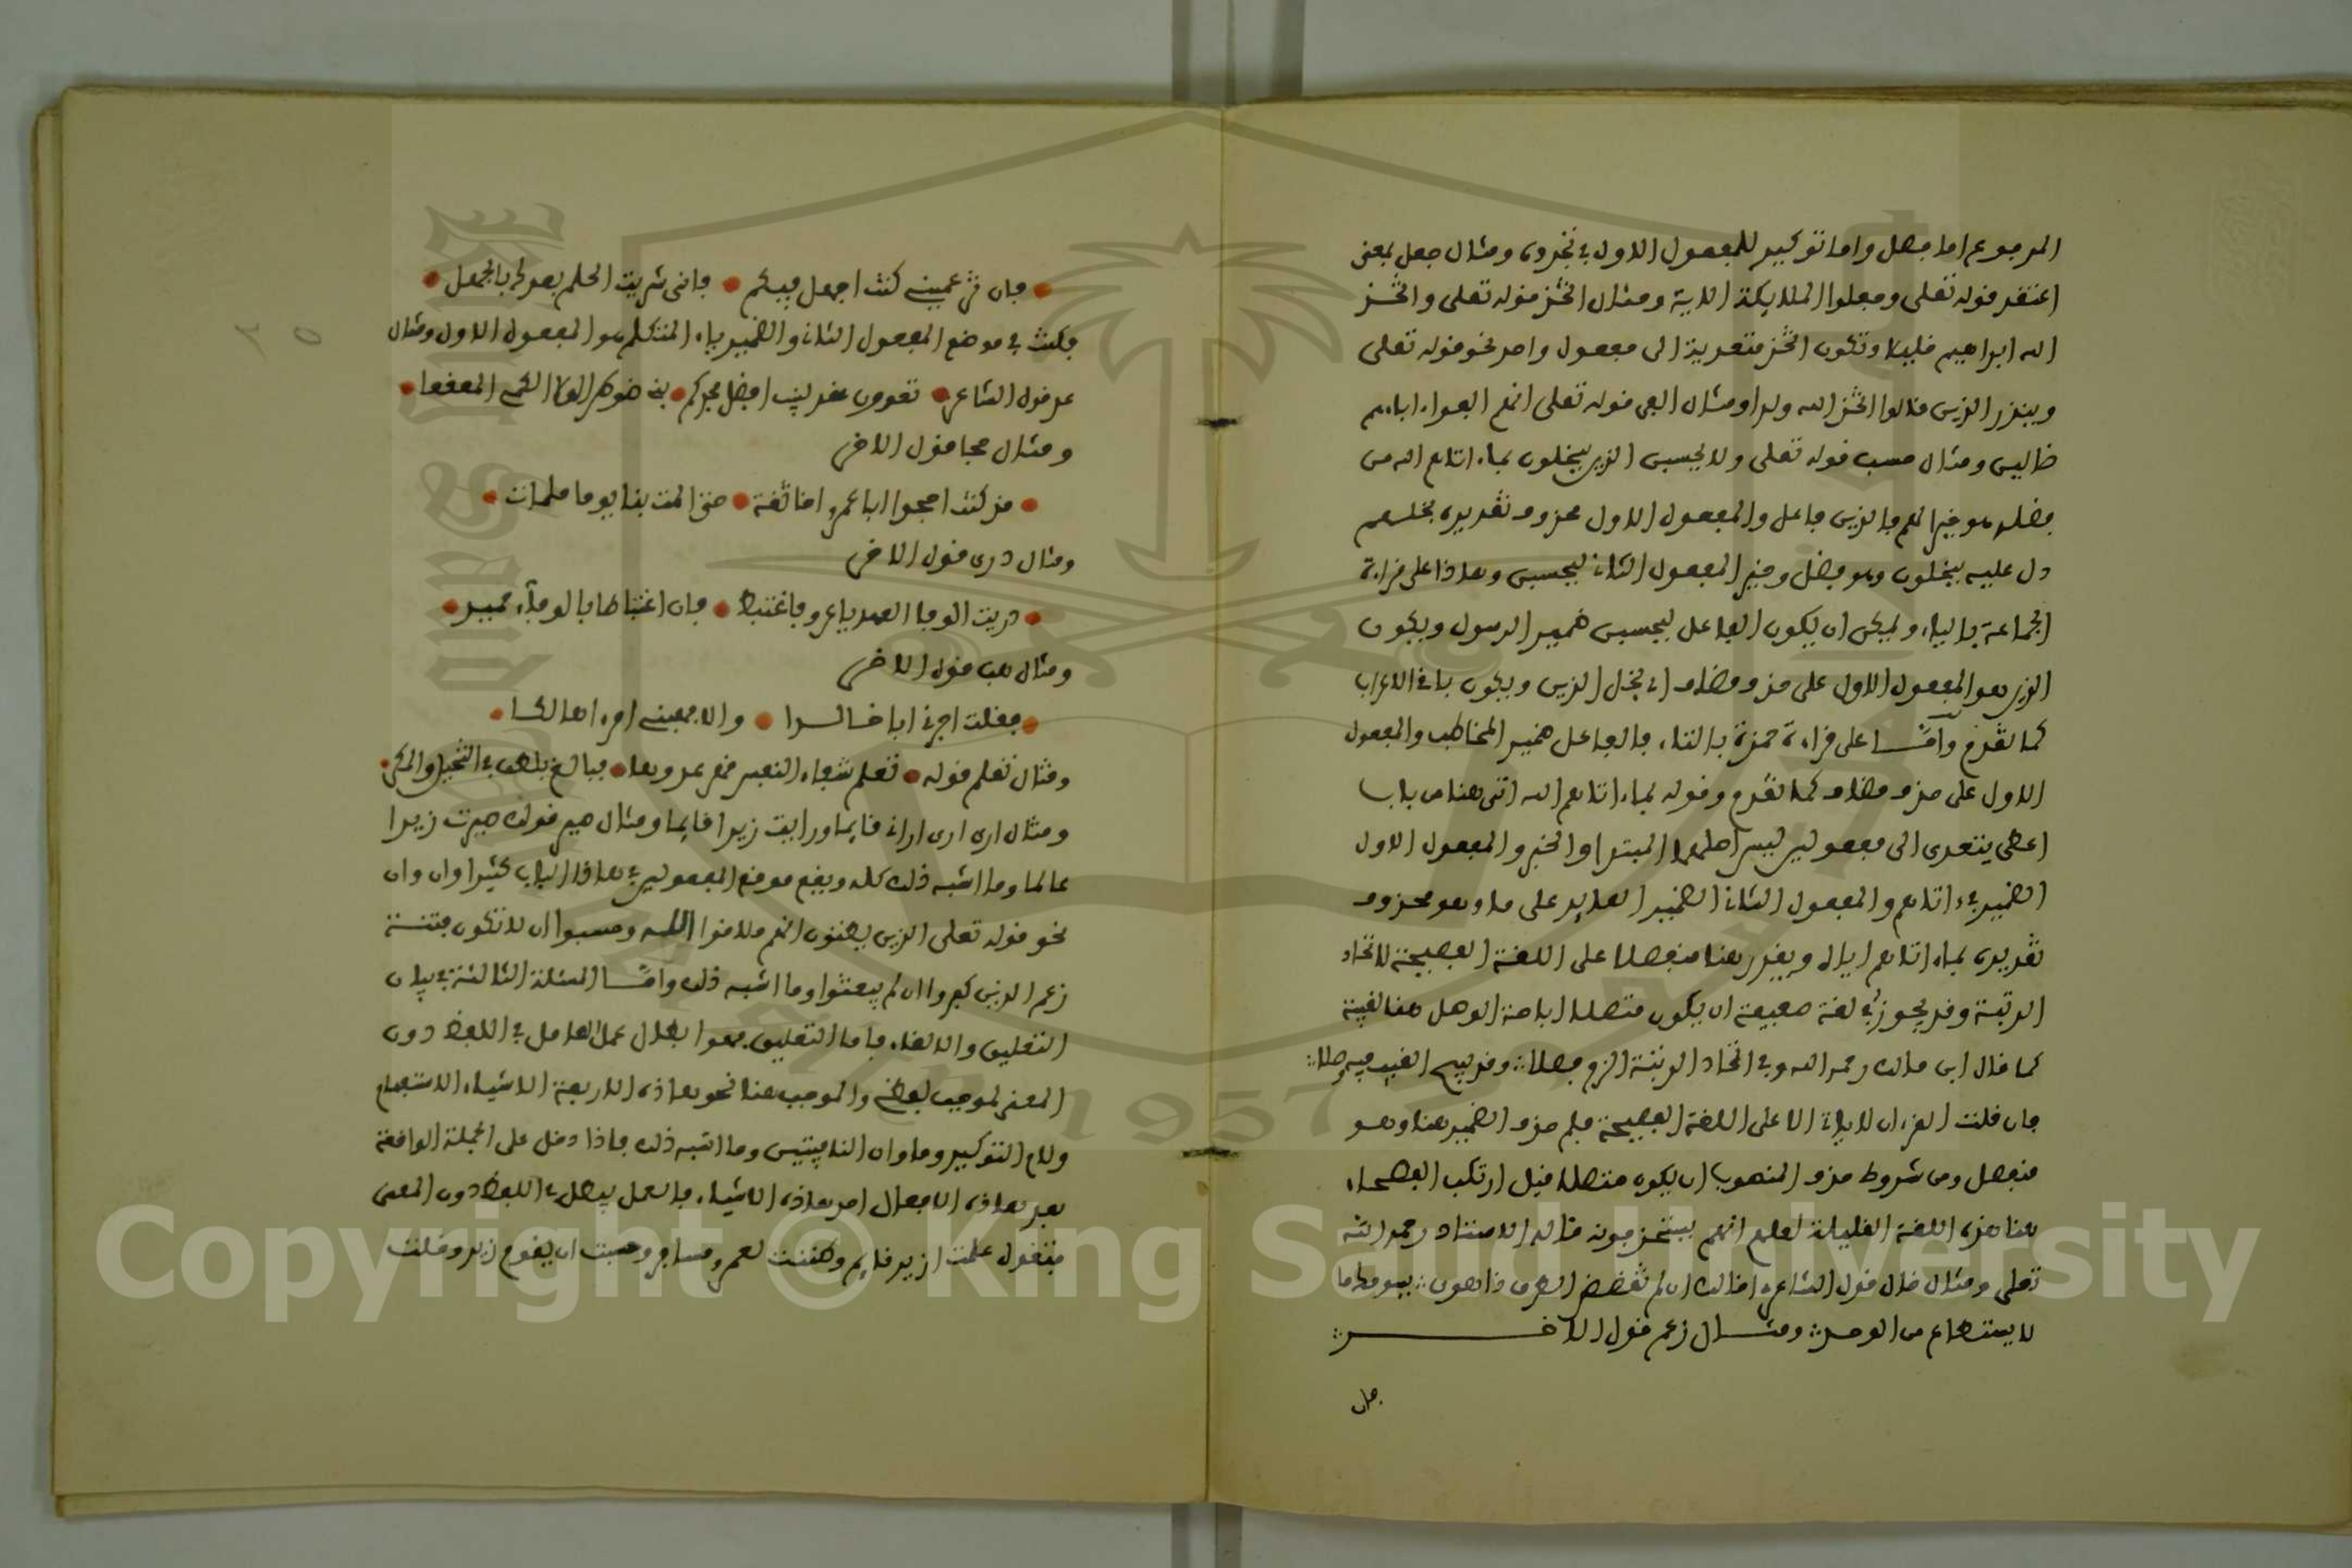 المرفوع اما فصل واما توكيد للمفعول الاول في تجدوه ومثال جعل بمعنى
اعتقد قوله تعلى وجعلوا الملايكة الاية ومثال اتخذ قوله تعلى واتخذ
الله ابراهيم خليلا وتكون اتخذ متعدية الى مفعول واحد نحو قوله تعلى
وينذر الذين قالوا اتخذ الله ولدا ومثال الفى قوله تعلى انهم الفوا اباءهم
ضالين ومثال حسب قوله تعلى ولا يحسبن الذين يبخلون بما اتاهم الله من
فضله هو خيرا لهم فالذين فاعل والمفعول الاول محذوف تقديره بخلهم
دل عليه يبخلون وهو فصل وخير المفعول الثاني ليحسبن وهاذا على قراءة
الجماعة بالياء ويمكن ان يكون الفاعل ليحسبن ضمير الرسول ويكون
الذين هو المفعول الاول على حذف مضاف اي بخل الذين ويكون باقي الاعراب
كما تقدم وامـا على قراءة حمزة بالتاء فالفاعل ضمير المخاطب والمفعول
الاول على حذف مضاف كما تقدم وقوله بما اتاهم الله اتى هنا من باب
اعطى يتعدى الى مفعولين ليس اصلهما المبتدا والخبر والمفعول الاول
الضمير في اتاهم والمفعول الثاني الضمير العايد على ما وهو محذوف
تقديره بما اتاهم اياه ويقدر هنا منفصلا على اللغة الفصيحة لاتحاد
الرتبة وقد يجوز في لغة ضعيفة ان يكون متصلا اباحة الوصل هنا
كما قال ابن مالك رحمه الله وفي اتحاد الرتبة الزم فصلا وقد يبيح الغيب فيه وصلا
فان قلت القرءان لا ياتي الا على اللغة الفصيحة فلم حذف الضمير هنا وهو
منفصل ومن شروط حذف المنصوب ان يكون متصلا قيل ارتكب الفصحاء
هنا هذه اللغة القليلة لعلم انهم يستحذفونه قاله الاستاذ رحمه الله
تعلى ومثال خال قول الشاعر اخالك ان لم تغضض الطرف ذا هوى يسومك ما
لا يستطاع من الوجد ومثـال زعم قول الاخـر
فان
فان تزعميني كنت اجهل فيكم فاني شريت الحلم بعدك بالجهل
فكنت في موضع المفعول الثاني والضمير ياء المتكلم هو المفعول الاول ومثال
عد قول الشاعر تعدون عقر النيب افضل مجدكم بني ضوطرى لولا الكمي المقنعا
ومثال حجا قول الاخر
قد كنت احجوا ابا عمرو اخا ثقة حتى المت بنا يوما ملمات
ومثال درى قول الاخر
دريت الوفا العهد يا عرو فاغتبط فان اغتباطا بالوفاء حميد
ومثال هب قول الاخر
فقلت اجرني ابا خالـدا والا فهبني امرءا هالكا
ومثال تعلم قوله تعلم شفاء النفس قهر عدوها فبالغ بلطف في التحيل والمكر
ومثال ارى ارى اراني قايما ورايت زيدا قايما ومثال صير قولك صيرت زيدا
عالما وما اشبه ذلك كله ويقع موقع المفعولين في هاذا الباب كثيرا وان وان
نحو قوله تعلى الذين يظنون انهم ملاقوا الله وحسبوا ان لا تكون فتنة
زعم الذين كفروا ان لم يبعثوا وما اشبه ذلك وامـا المسئلة الثالثة في بيان
التعليق والالغاء فاما التعليق فهو ابطال عمل العامل في اللفظ دون
المعنى لموجب لفظي والموجب هنا نحو هاذه الاربعة الاشياء الاستفهام
ولام التوكيد وما وان النافيتين وما اشبه ذلك فاذا دخل على الجملة الواقعة
بعد هاذه الافعال احد هاذه الاشياء فالعمل يبطل في اللفظ دون المعنى
فتقول علمت ازيد قايم وظننت لعمرو مسافر وحسبت ان يقوم زيد وقلت